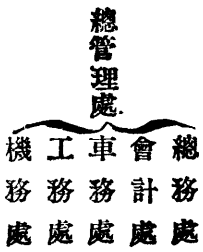 總管理處
總務處
會計處
車務處
工務處
機務處